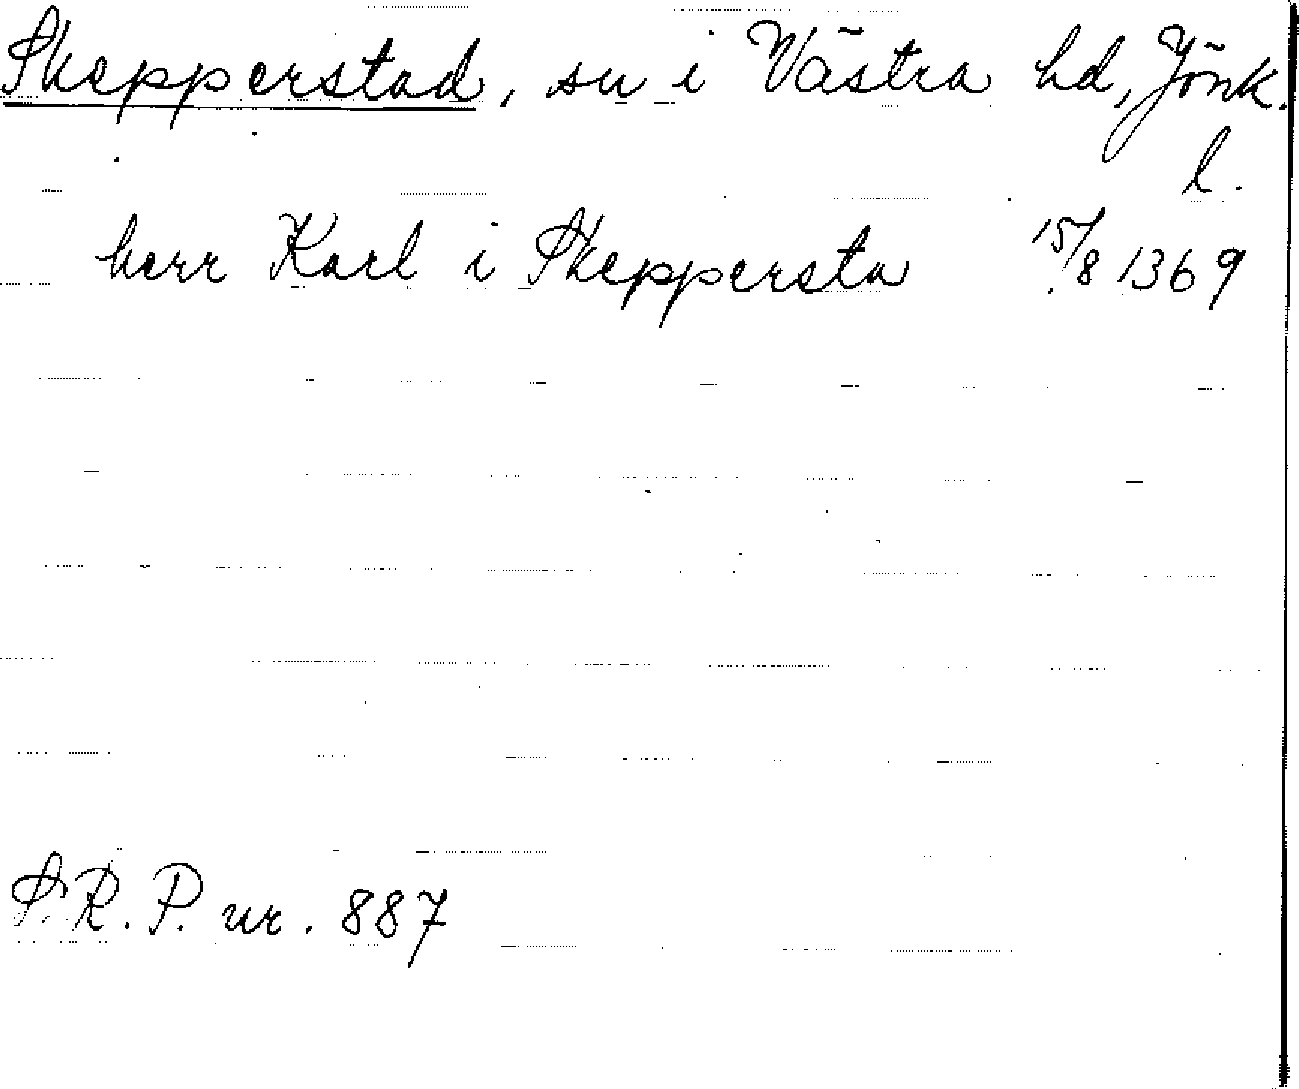 Skepperstad, sn i Västra hd, Jönk.
l.
herr Karl i Skeppersta 15/8 1369
S.R.P. nr. 887